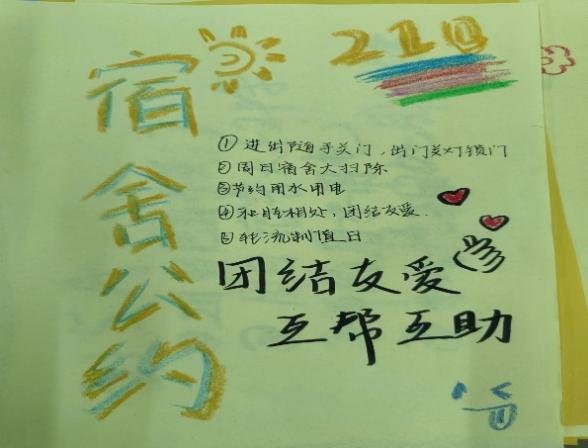 宿舍公约
210
①进出随手关门，出门关灯锁门
②周日宿舍大扫除
③节约用水用电
④和睦相处，团结友爱.
⑤轮流制值日
团结友爱
互帮互助